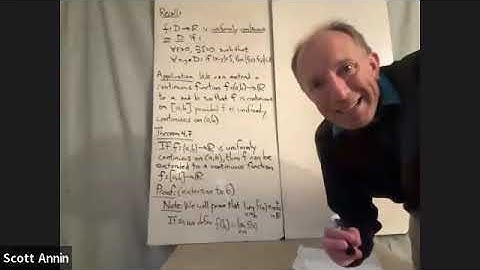 Recall:
f: D→ℝ is uniformly continuous
on D if:
∀ε>0, ∃δ>0, such that
∀x,y∈D: if |x-y|<δ,
Application: We can extend a
continuous function f:(a,b)→ℝ
to a and b so that f is continuous
on [a,b] provided f is uniformly
continuous on (a,b)
Theorem 4.7
If f:(a,b)→ℝ is uniformly
continuous on (a,b), then f can be
extended to a continuous function
f:[a,b]→ℝ
Proof: (extension to b)
Note: We will prove that lim f(x)
If so, we define f(b) = lim f(x)
Scott Annin